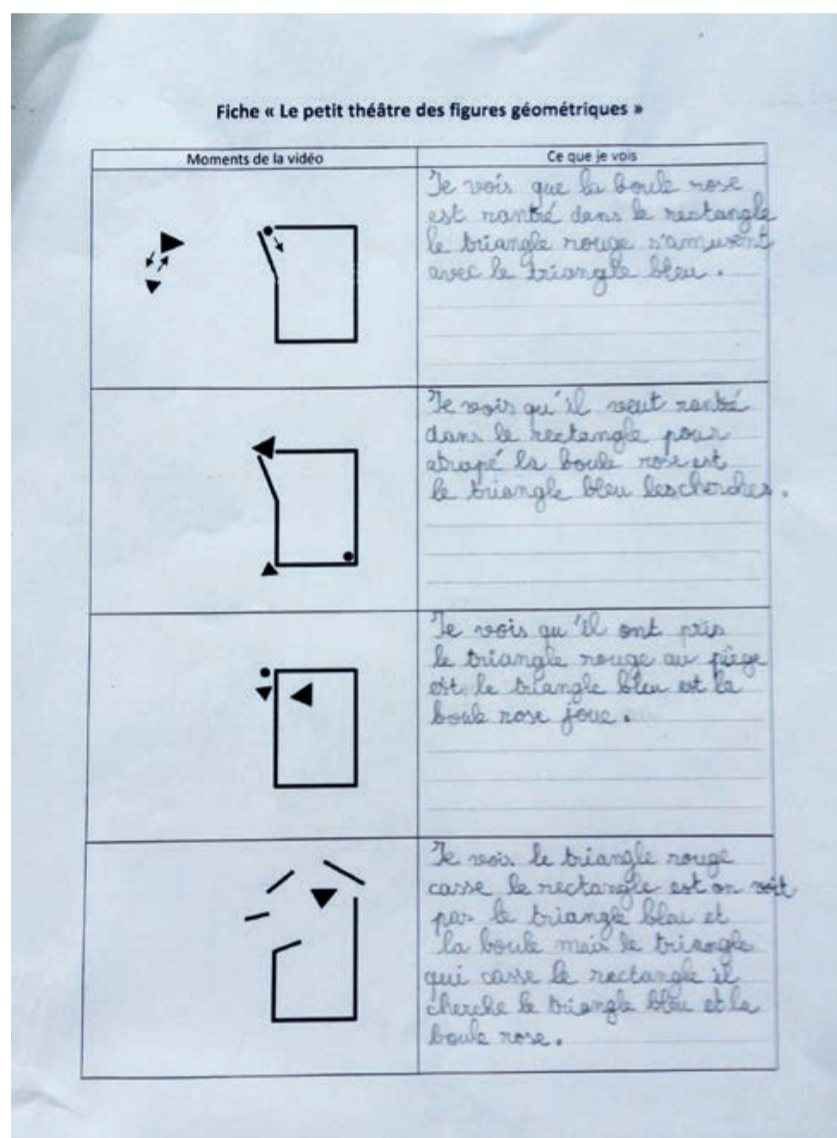 Fiche « Le petit théâtre des figures géométriques »
Moments de la vidéo
Ce que je vois
Je vois que la boule rose
est rantré dans le rectangle
le triangle rouge s'amusent
avec le triangle bleu.
Je vois qu'il veut rantré
dans le rectangle pour
atrapé la boule rose est
le triangle bleu les cherches.
Je vois qu'il ont pris
le triangle rouge au piège
est le triangle bleu est la
boule rose joue.
Je vois le triangle rouge
casse le rectangle est on voit
pas le triangle bleu et
la boule mais le triangle
qui casse le rectangle il
cherche le triangle bleu et la
boule rose.